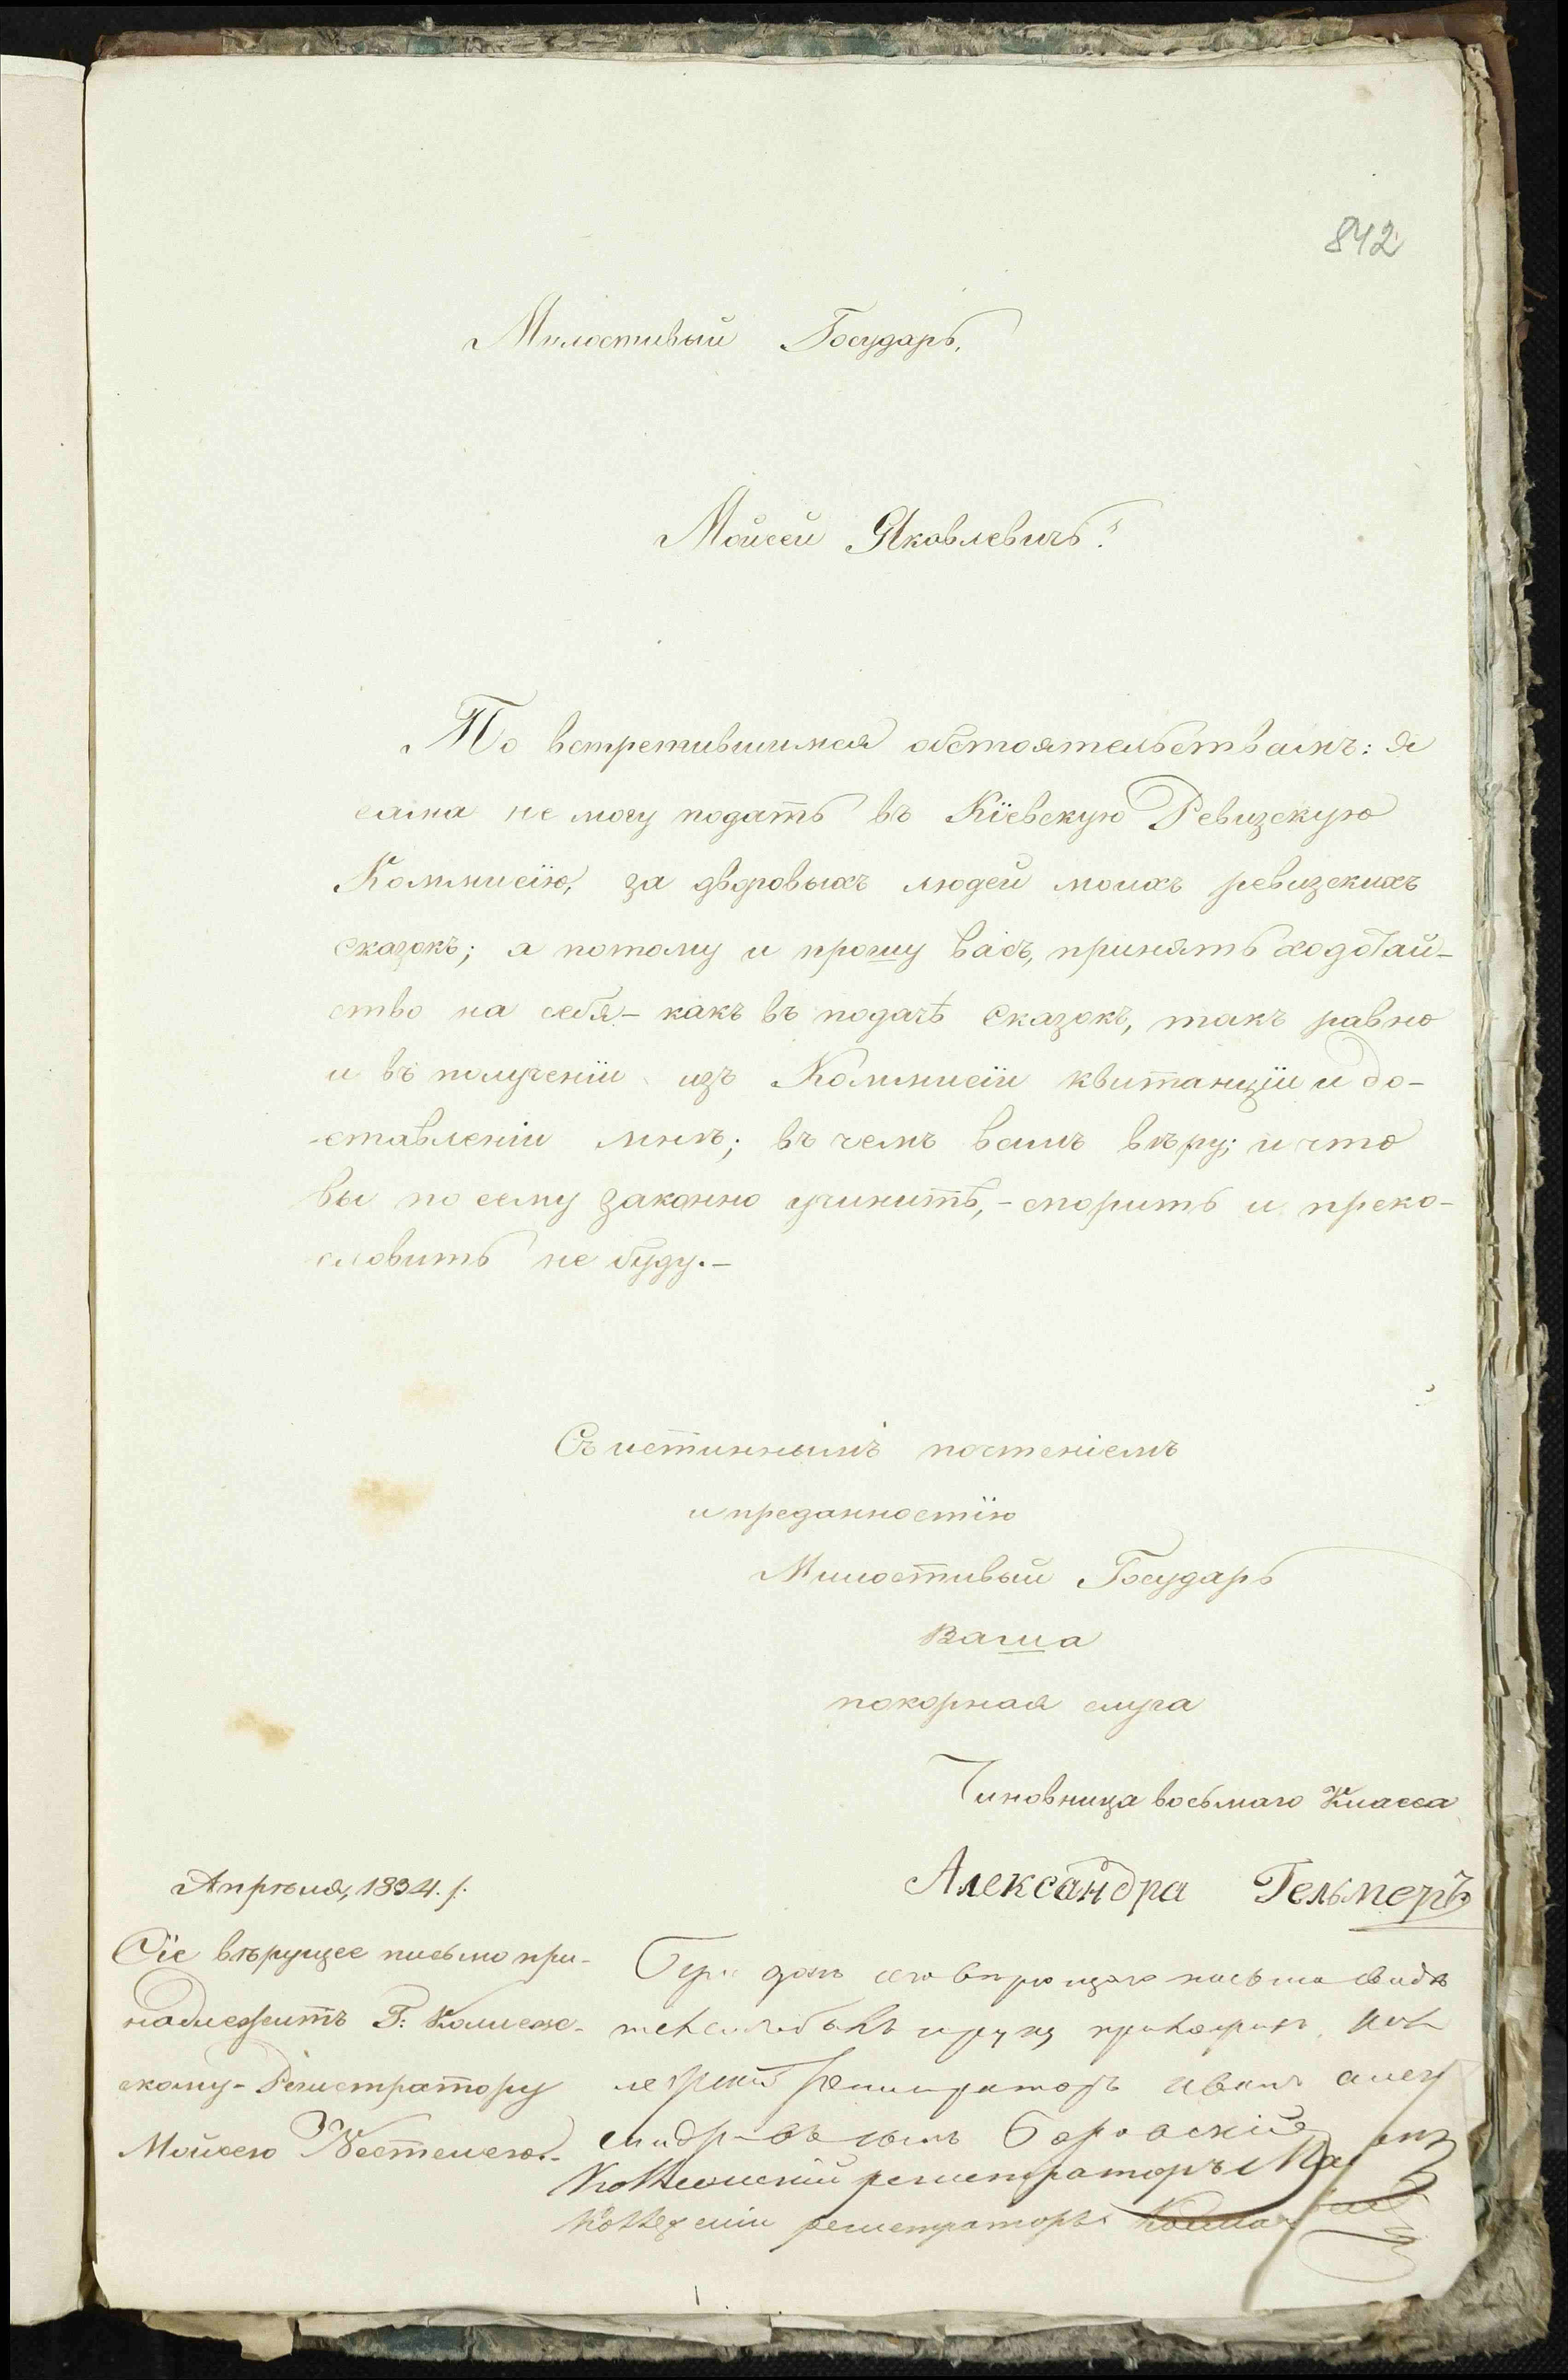 842
Милостивый Государь,
Мойсей Яковлевичъ!
По встретившимся обстоятельствамъ: я
сама не могу подать въ Кіевскую Ревизскую
Коммисію, за дворовыхъ людей моихъ ревизскихъ
сказокъ; а потому и прошу васъ, принять ходотай-
ство на себя – какъ въ подачѣ сказокъ, такъ равно
и въ полученіи изъ Коммисіи квитанціи и до-
ставленіи мнѣ; въ чемъ вамъ вѣрю; и что
вы по сему законно учинитѣ, – спорить и преко-
словить не буду. –
Съ истиннымъ почтеніемъ
и преданностію
Милостивый Государь
Ваша
покорная слуга
Чиновница восьмаго Класса
Александра Гельмерсъ
Апрѣля, 1834. г.
Сіе вѣрущее письмо при-
надлежитъ Г: Коллеж-
скому-Регистратору
Мойсею
сего письма
регистраторъ Иванъ алек
сынъ Боровскій
Коллежскій регистраторъ
Коллежскій регистраторъ